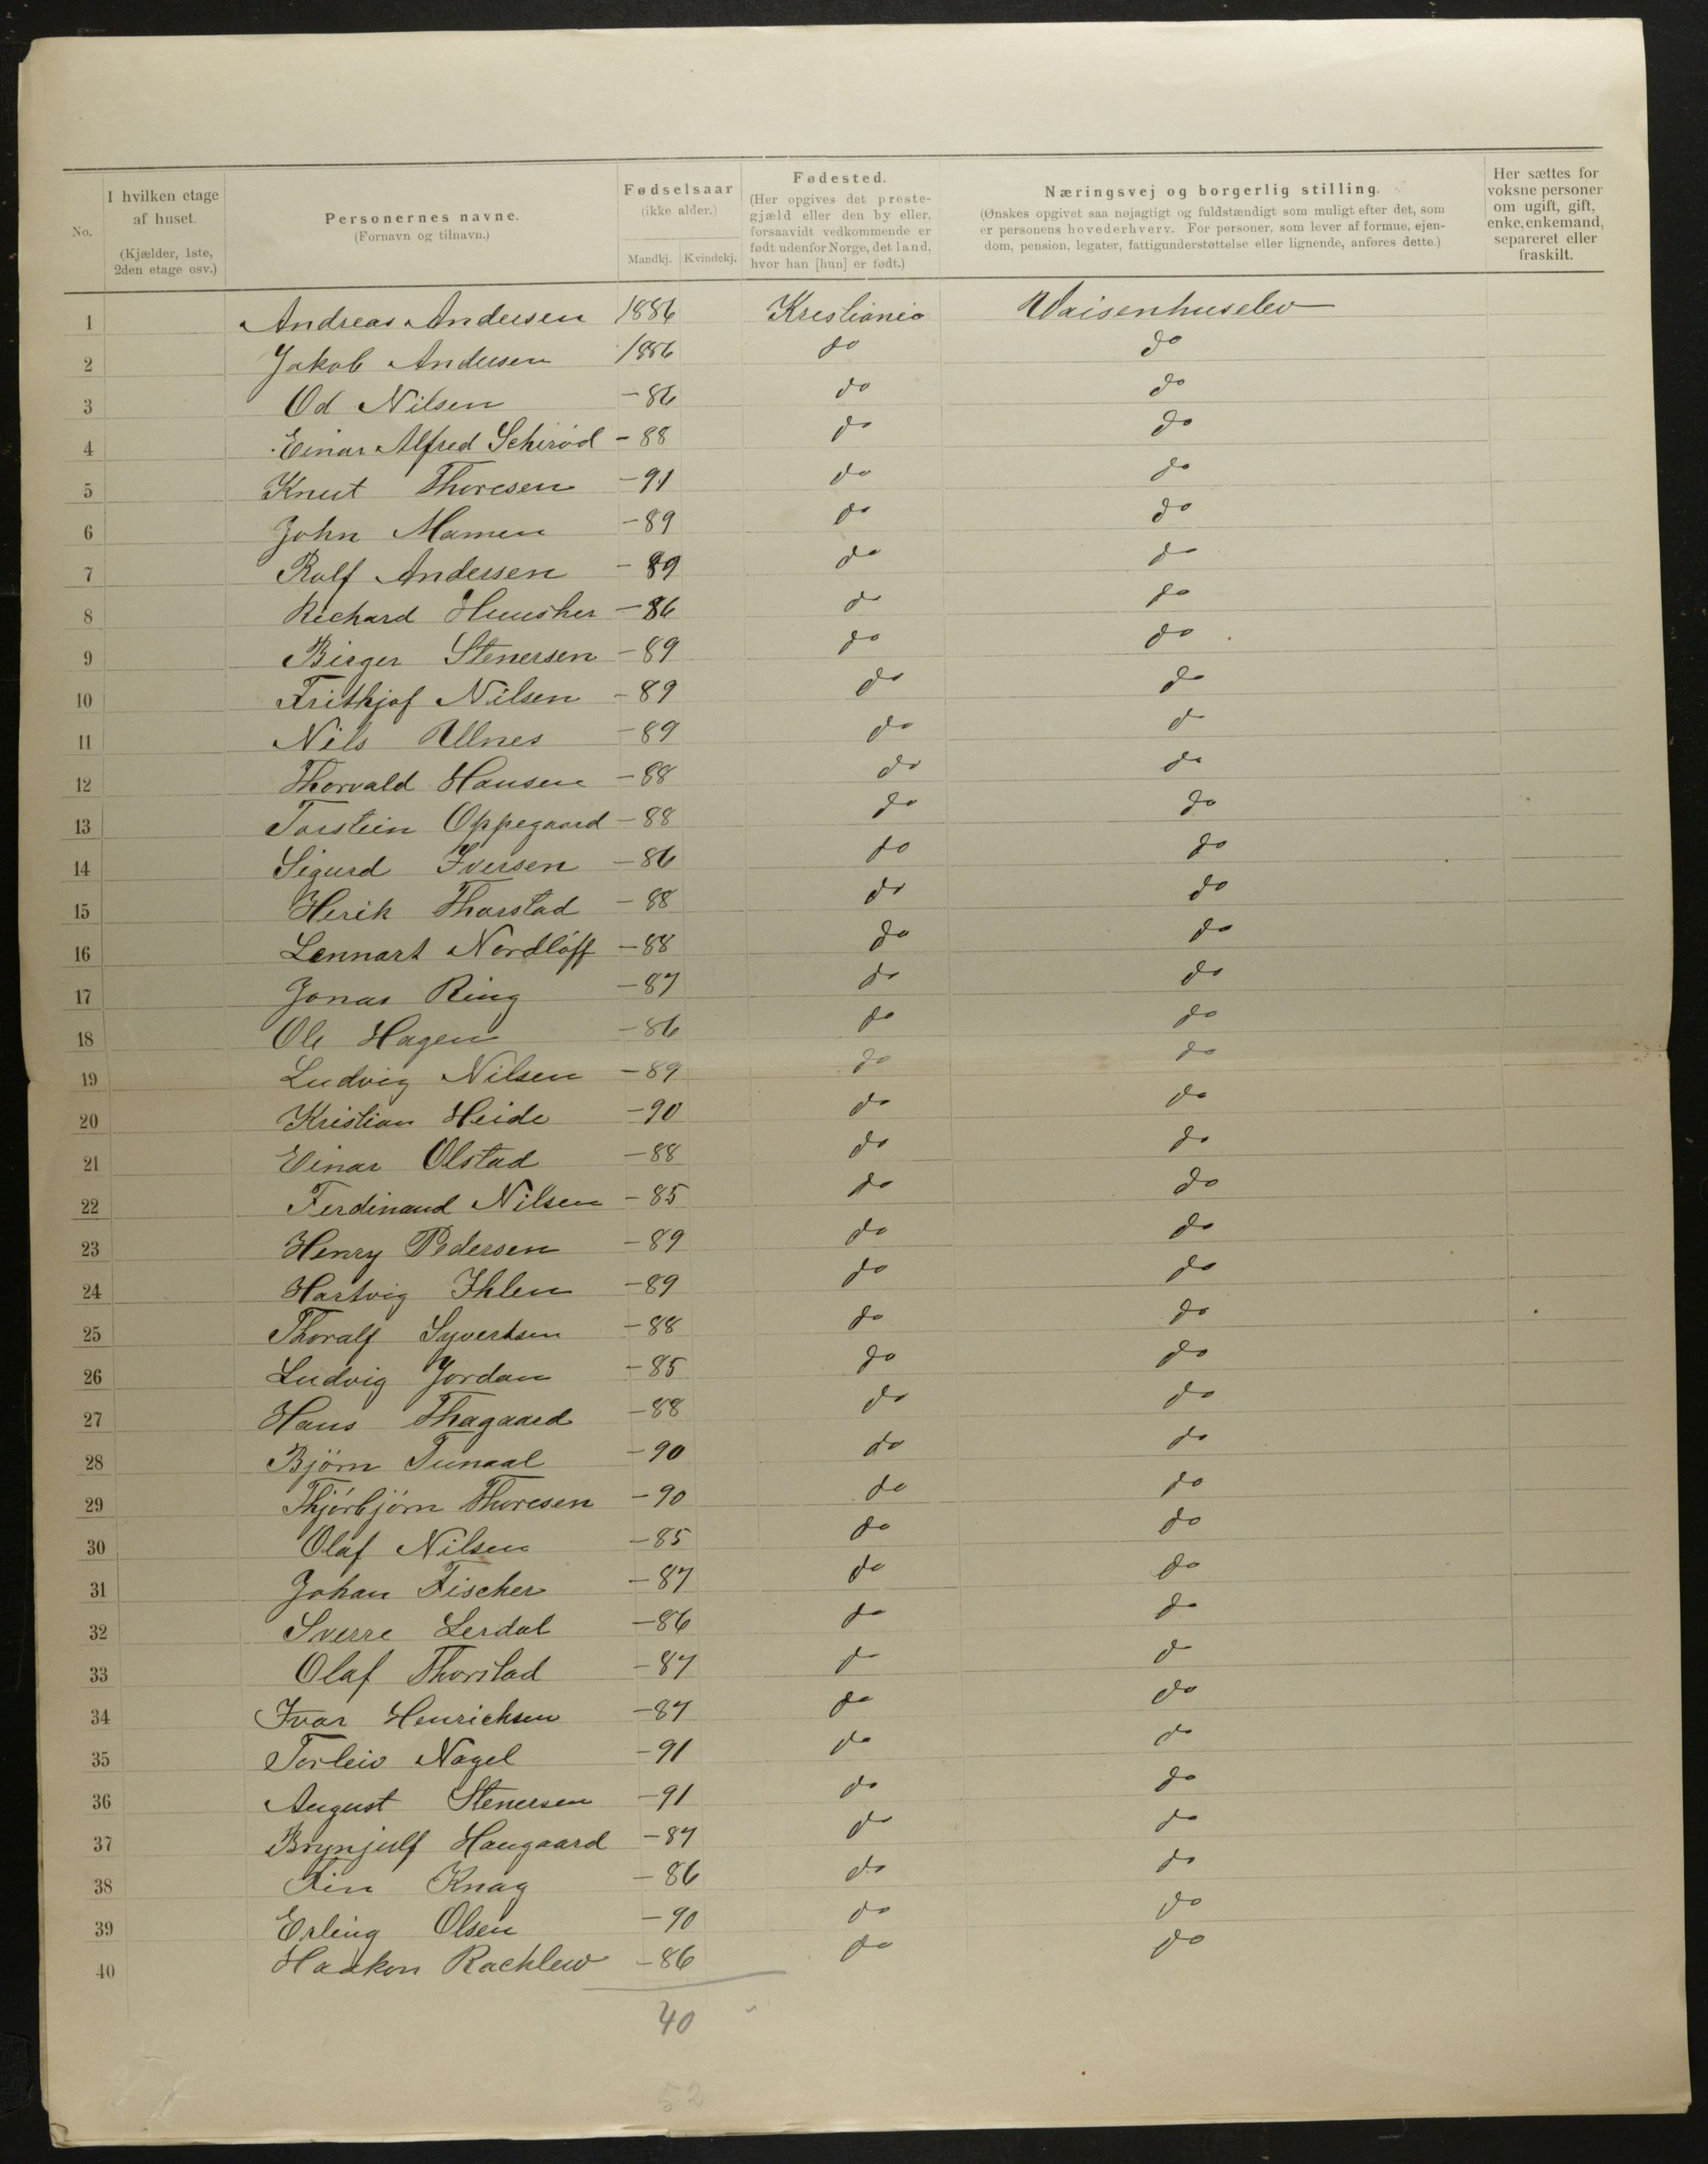 No.
I hvilken etage af huset. (Kjælder, 1ste, 2den etage osv.)
Personernes navne. (Fornavn og tilnavn.)
Fødselsaar (ikke alder.) Mandkj. Kvindekj.
Fødested. (Her opgives det prestegjæld eller den by eller, forsaavidt vedkommende er født udenfor Norge, det land, hvor han [hun] er født.)
Næringsvej og borgerlig stilling. (Ønskes opgivet saa nøjagtigt og fuldstændigt som muligt efter det, som er personens hovederhverv. For personer, som lever af formue, ejendom, pension, legater, fattigunderstøttelse eller lignende, anføres dette.)
Her sættes for voksne personer om ugift, gift, enke, enkemand, separeret eller fraskilt.
1 Andreas Andersen 1886 Kristiania Waisenhuselev
2 Jakob Andersen 1886 do do
3 Od Nilsen -86 do do
4 Einar Alfred Schirød -88 do do
5 Knut Thoresen -91 do do
6 John Mamen -89 do do
7 Rolf Andersen -89 do do
8 Richard -86 do do
9 Birger Stenersen -89 do do
10 Frithjof Nilsen -89 do do
11 Nils Ulnes -89 do do
12 Thorvald Hansen -88 do do
13 Torstein Oppegaard -88 do do
14 Sigurd Iversen -86 do do
15 Herik Thorstad -88 do do
16 Lennart Nordløff -88 do do
17 Jonas Ring -87 do do
18 Ole Hagen -86 do do
19 Ludvig Nilsen -89 do do
20 Kristian Heide -90 do do
21 Einar Olstad -88 do do
22 Ferdinand Nilsen -85 do do
23 Henry Pedersen -89 do do
24 Hartvig Ihlen -89 do do
25 Thoralf Syvertsen -88 do do
26 Ludvig Jordan -85 do do
27 Hans Thagaard -88 do do
28 Bjørn -90 do do
29 Thjörbjørn Thoresen -90 do do
30 Olaf Nilsen -85 do do
31 Johan Fischer -87 do do
32 Sverre Lerdal -86 do do
33 Olaf Thorstad -87 do do
34 Ivar Henrichsen -87 do do
35 Torleiv Nagel -91 do do
36 August Stenersen -91 do do
37 Brynjulf Haugaard -87 do do
38 Fin Knag -86 do do
39 Erling Olsen -90 do do
40 Haakon Rachlew -86 do do
40
52